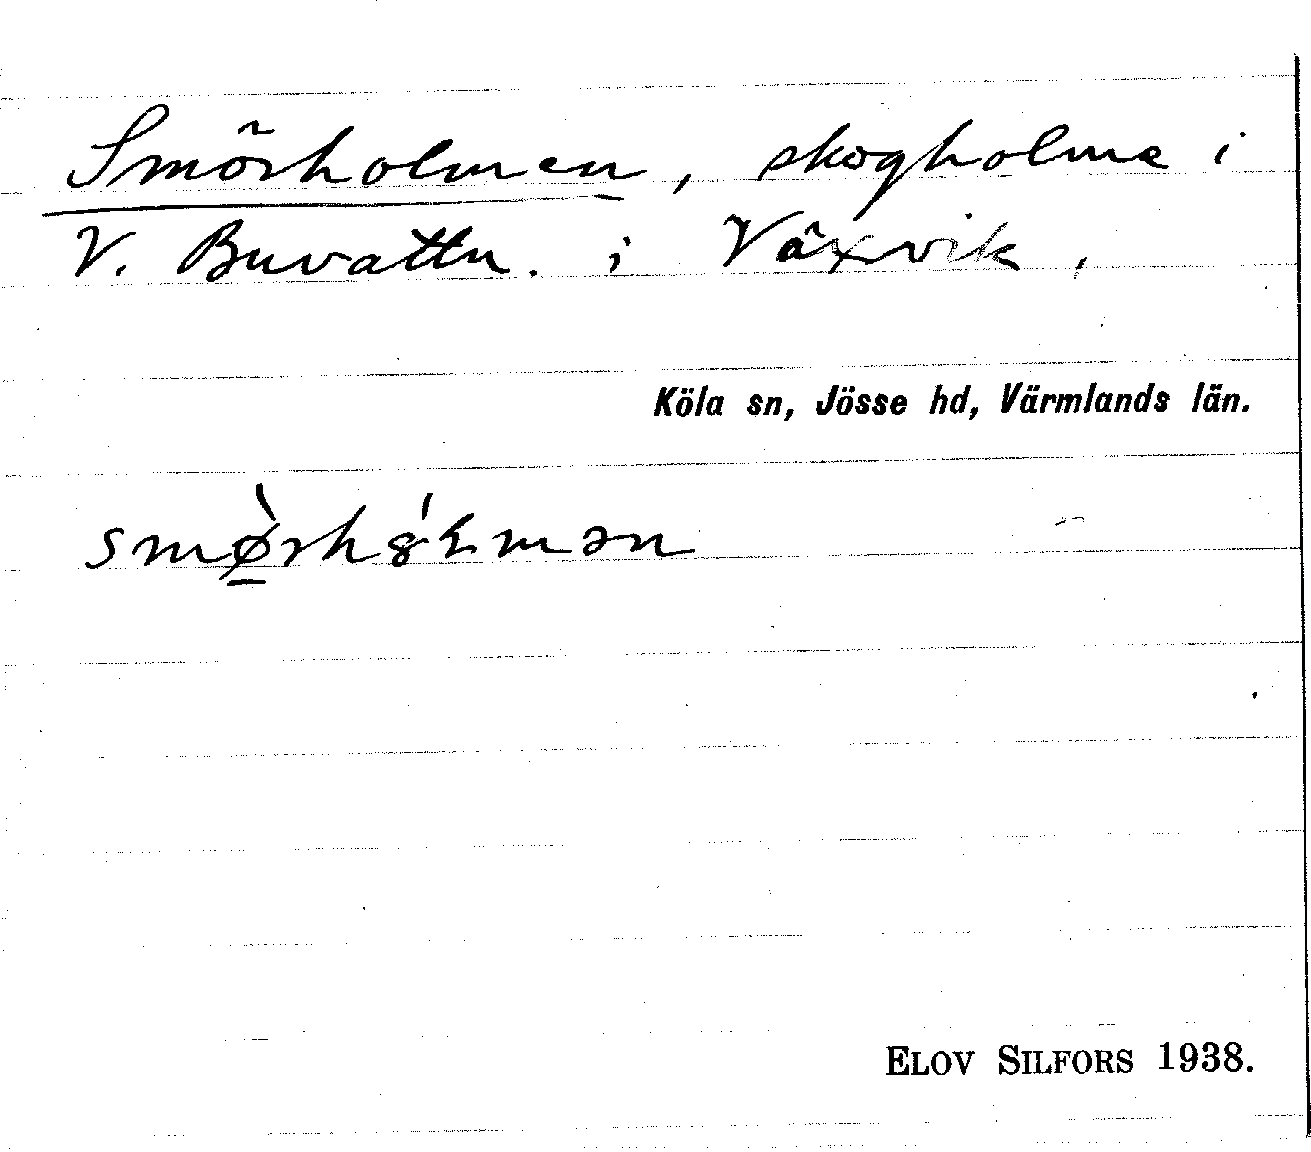 Smörholmen, skogholme i
V. Buvattn. i Växvik,
Köla sn, Jösse hd, Värmlands län.
ELOV SILFORS 1938.